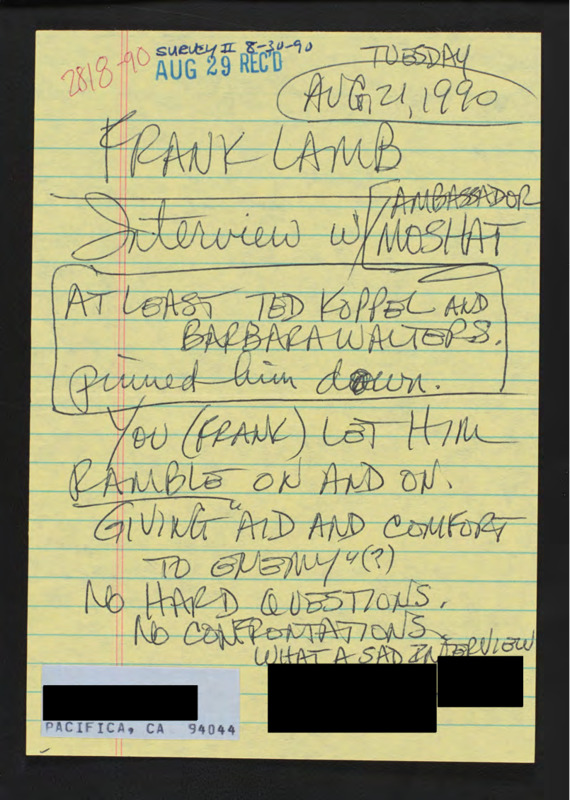 2818-90
SURVEY II 8-30-90
AUG 29 REC'D
TUESDAY
AUG, 21, 1990
FRANK LAMB
Interview w/ AMBASSADOR
MOSHAT
AT LEAST TED KOPPEL AND
BARBARA WALTERS.
pinned him down.
YOU (FRANK) LET HIM
RAMBLE ON AND ON.
GIVING "AID AND COMFORT
TO ENEMY" (?)
NO HARD QUESTIONS.
NO CONFRONTATIONS.
WHAT A SAD INTERVIEW
PACIFICA, CA 94044